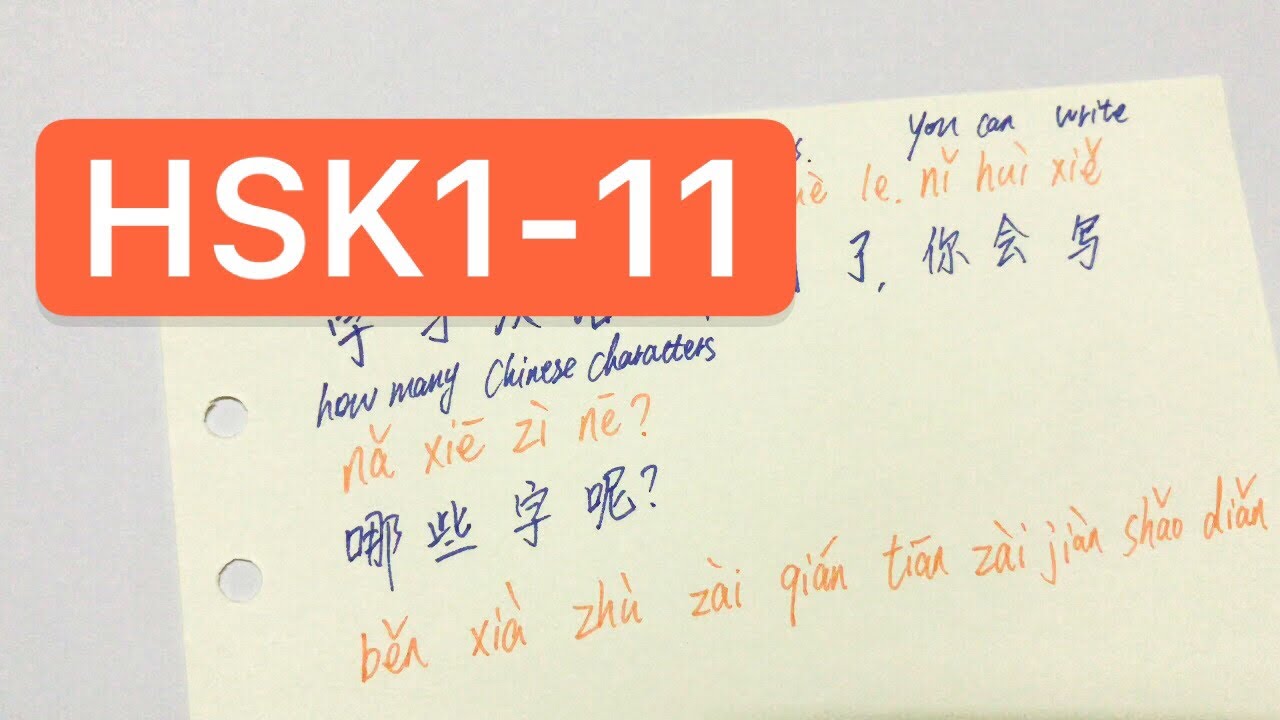 HSK1-11
You can write
le. nǐ huì xiě
了, 你会写
学习汉语
how many Chinese characters
nǎ xiē zì nē?
哪些字呢?
běn xià zhù zài qián tiān zài jiàn shǎo diǎn